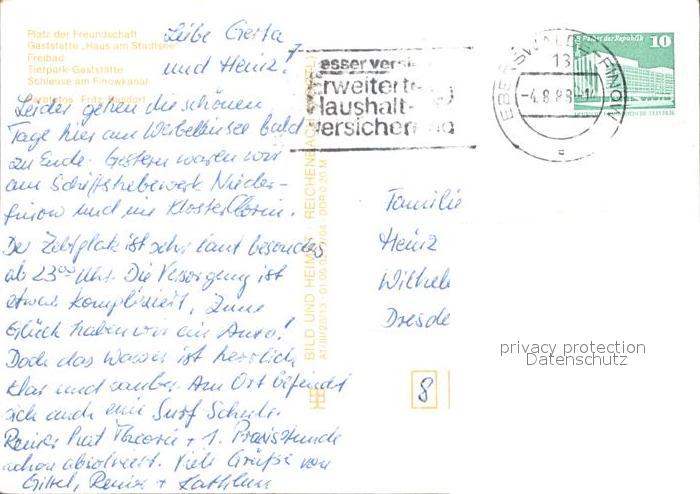 Platz der Freundschaft
Gaststätte „Haus am Stadtsee"
Freibad
Tierpark-Gaststätte
Schleuse am Finowkanal
Liebe Gerta
und Heinz!
Leider gehen die schönen
Tage hier am Werbellinsee bald
zu Ende. Gestern waren wir
am Schiffshebewerk Nieder-
finow und im Kloster Chorin.
Der Zeltplatz ist sehr laut besonders
ab 23⁰⁰ Uhr. Die Versorgung ist
etwas kompliziert, zum
Glück haben wir ein Auto!
Doch das Wasser ist herrlich
klar und sauber. Am Ort befindet
sich auch eine Surf-Schule.
Reiner hat Theorie + 1. Praxisstunde
schon absolviert. Viele Grüße von
Gisel, Reiner + Kathleen
BILD UND HEIMAT REICHENBACH
esser versi
Erweitert
Haushalt-
versicherung
EBERSWALDE-FINOW
13
-4.8.88-14
a
Palast der Republik
10
DDR
Familie
Heinz
Wilhel
Dresde
8
privacy protection
Datenschutz